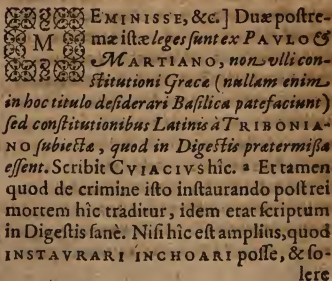 MEMINISSE, &c.] Duæ postre-
mæ istæ leges sunt ex PAVLO &
MARTIANO, non vlli con-
stitutioni Græcæ (nullam enim
in hoc titulo desiderari Basilica patefaciunt)
sed constitutionibus Latinis à TRIBONIA-
NO subiectæ, quod in Digestis prætermissæ
essent. Scribit CVIACIVS hîc. ª Et tamen
quod de crimine isto instaurando post rei
mortem hîc traditur, idem erat scriptum
in Digestis sanè. Nisi hîc est amplius, quod
INSTAVRARI INCHOARI posse, & so-
lere